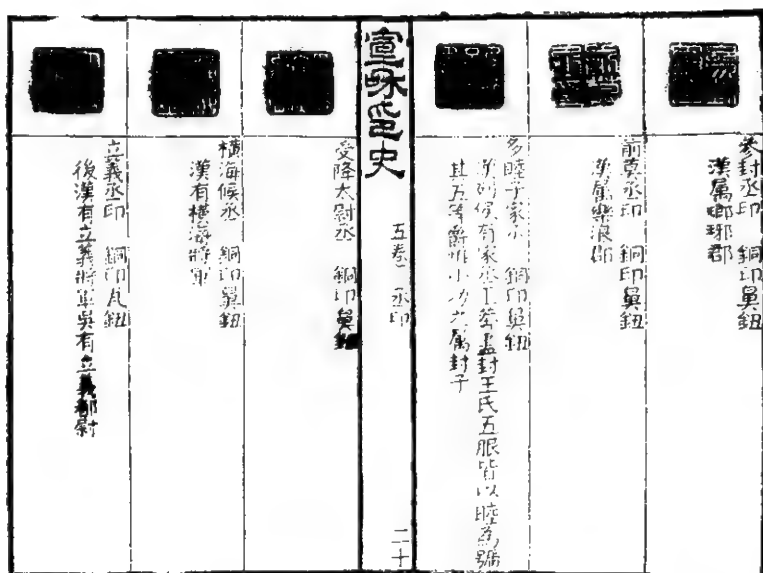 參封丞印　銅印鼻鈕
漢屬瑯琊郡
前莫丞印　銅印鼻鈕
漢屬樂浪郡
多睦子家丞　銅印鼻鈕
漢列侯有家丞王莽盡封王氏五服皆以睦為號
其五等爵惟小功之屬封子
宣和印史
五卷　丞印
二十
受降太尉丞　銅印鼻鈕
橫海候丞　銅印鼻鈕
漢有橫海將軍
立義丞印　銅印瓦鈕
後漢有立義將軍吳有立義都尉